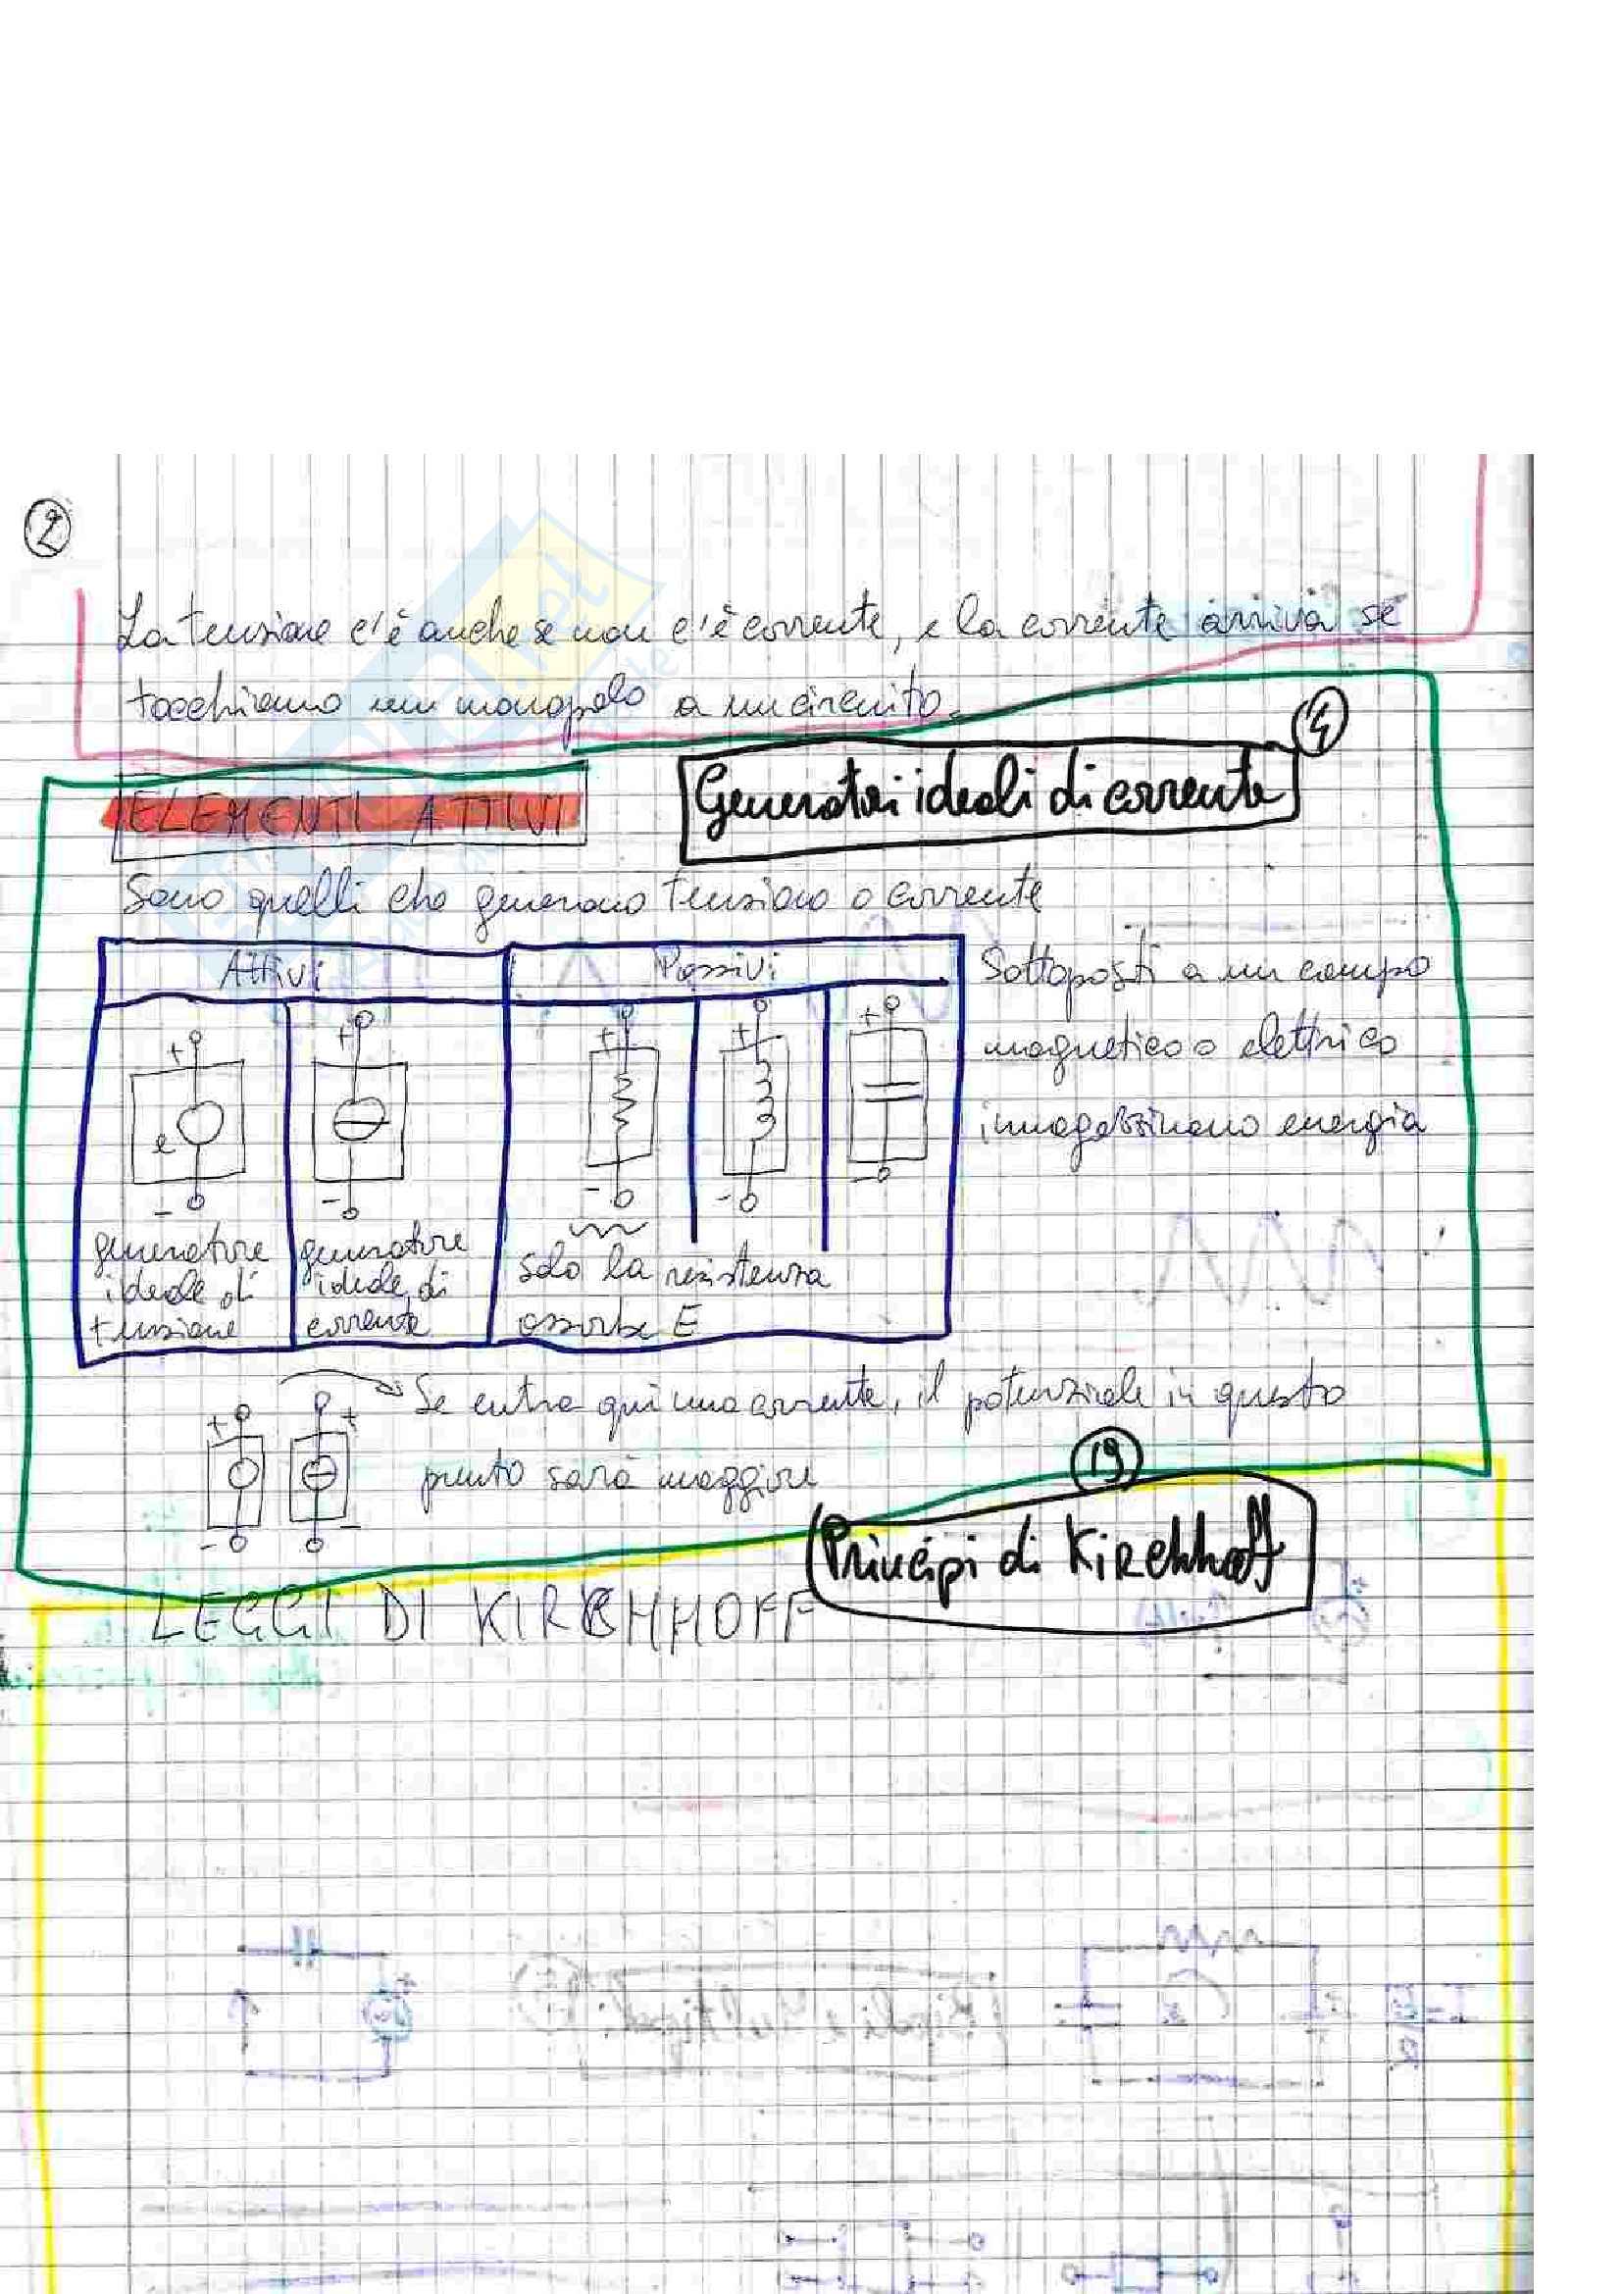 2
La tensione c'è anche se non c'è corrente, e la corrente arriva se
tocchiamo un monopolo a un circuito.
4
ELEMENTI ATTIVI
Generatori ideali di corrente
Sono quelli che generano tensione o corrente
Attivi
Passivi
Sottoposti a un campo
magnetico o elettrico
immagazzinano energia
+
+
+
+
+
e
-
-
-
-
-
generatore
ideale di
tensione
generatore
ideale di
corrente
solo la resistenza
assorbe E
+
+
Se entra qui una corrente, il potenziale in questo
punto sarà maggiore
-
-
19
Principi di Kirchhoff
LEGGI DI KIRCHHOFF